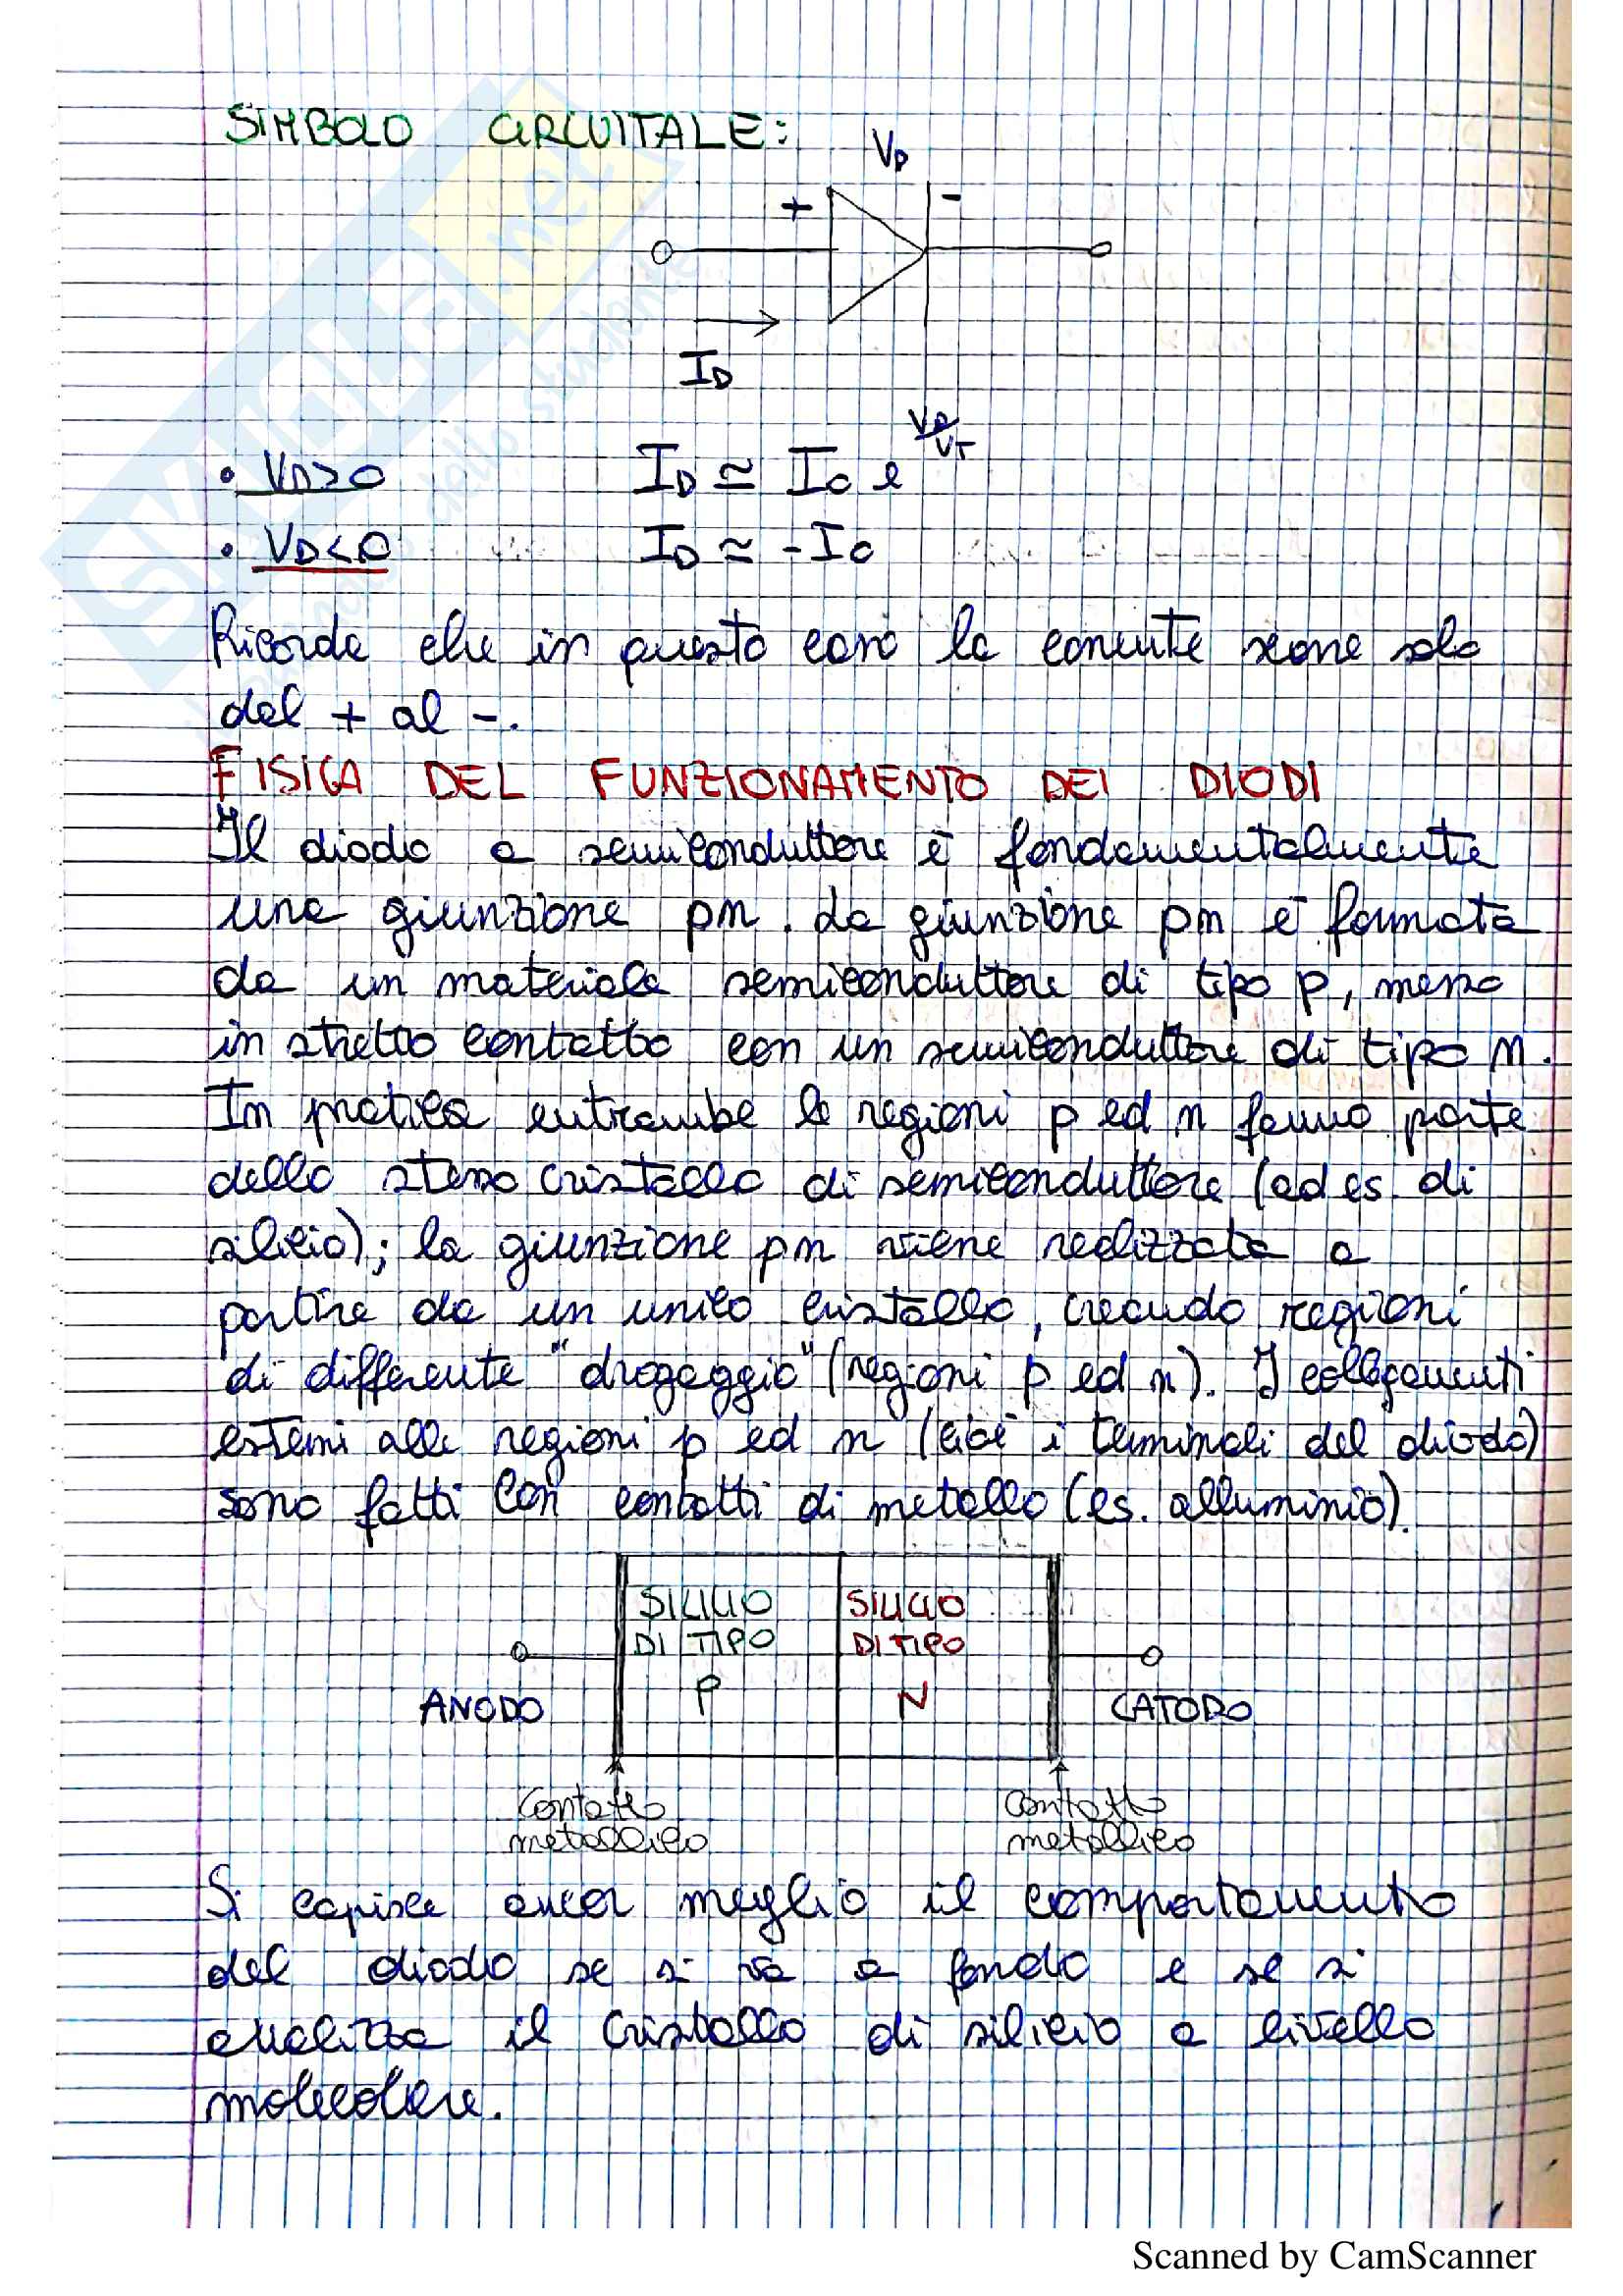 SIMBOLO CIRCUITALE:
VD
+ -
ID
• VD>0 ID ≃ I0 e^VD/VT
• VD<0 ID ≃ -I0
Ricorda che in questo caso la corrente scorre solo
dal + al -.
FISICA DEL FUNZIONAMENTO DEI DIODI
Il diodo a semiconduttore è fondamentalmente
una giunzione pn. La giunzione pn è formata
da un materiale semiconduttore di tipo p, messo
in stretto contatto con un semiconduttore di tipo n.
In pratica entrambe le regioni p ed n fanno parte
dello stesso cristallo di semiconduttore (ad es. di
silicio); la giunzione pn viene realizzata a
partire da un unico cristallo, creando regioni
di differente "drogaggio" (regioni p ed n). I collegamenti
esterni alle regioni p ed n (cioè i terminali del diodo)
sono fatti con contatti di metallo (es. alluminio).
SILICIO DI TIPO P
SILICIO DI TIPO N
ANODO
CATODO
Contatto metallico
Contatto metallico
Si capisce ancor meglio il comportamento
del diodo se si va a fondo e se si
analizza il cristallo di silicio a livello
molecolare.
SKUOLA.net
Scanned by CamScanner